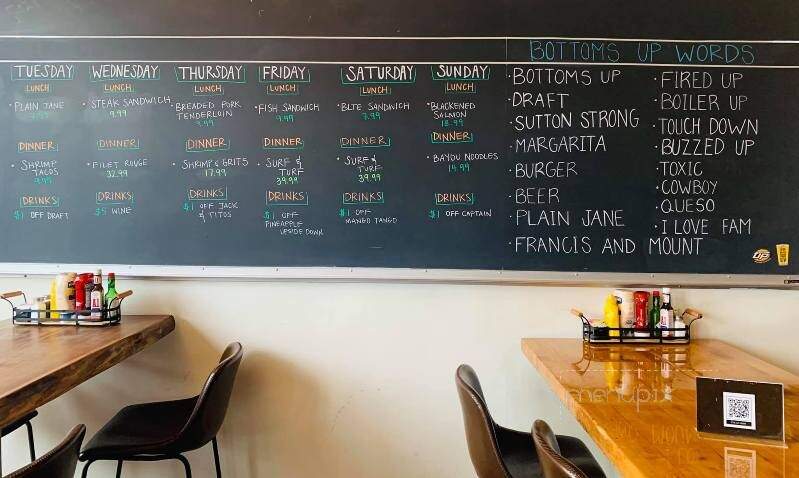 BOTTOMS UP WORDS
TUESDAY
LUNCH
• PLAIN JANE
9.99
DINNER
• SHRIMP
TACOS
9.99
DRINKS
$1 OFF DRAFT
WEDNESDAY
LUNCH
• STEAK SANDWICH
9.99
DINNER
• FILET ROUGE
32.99
DRINKS
$5 WINE
THURSDAY
LUNCH
• BREADED PORK
TENDERLOIN
9.99
DINNER
• SHRIMP & GRITS
17.99
DRINKS
$1 OFF JACK
& TITOS
FRIDAY
LUNCH
• FISH SANDWICH
9.99
DINNER
• SURF &
TURF
39.99
DRINKS
$1 OFF
PINEAPPLE
UPSIDE DOWN
SATURDAY
LUNCH
• BLTE SANDWICH
9.99
DINNER
• SURF &
TURF
39.99
DRINKS
$1 OFF
MANGO TANGO
SUNDAY
LUNCH
• BLACKENED
SALMON
18.99
DINNER
• BAYOU NOODLES
19.99
DRINKS
$1 OFF CAPTAIN
• BOTTOMS UP
• DRAFT
• SUTTON STRONG
• MARGARITA
• BURGER
• BEER
• PLAIN JANE
• FRANCIS AND MOUNT
• FIRED UP
• BOILER UP
• TOUCH DOWN
• BUZZED UP
• TOXIC
• COWBOY
• QUESO
• I LOVE FAM
UP
menupix